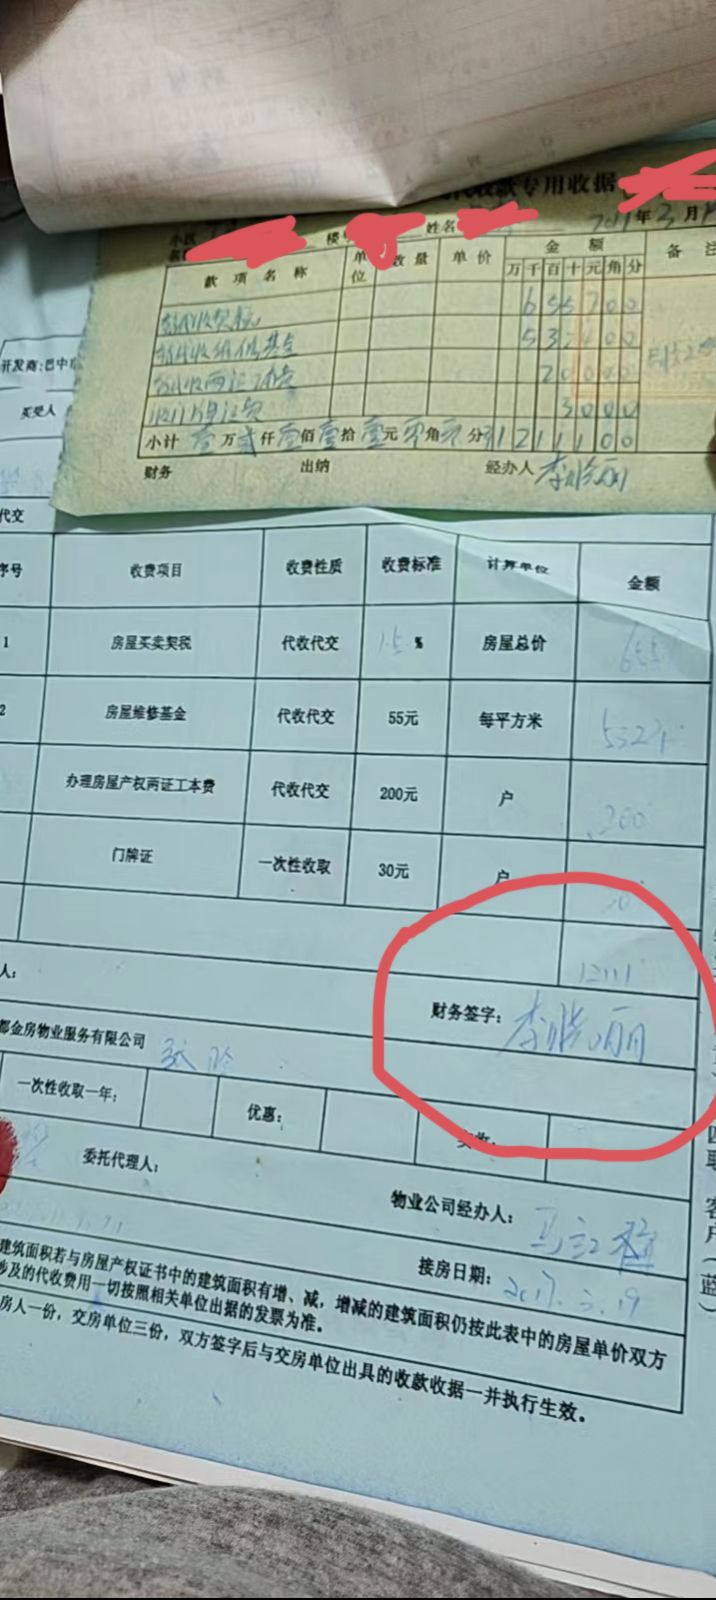 代收款专用收据
小区 楼 姓名 2017年3月19
款项名称 单位 数量 单价 金额 备注
万千百十元角分
暂代收契税 6 5 5 7 0 0
暂代收维修基金 5 3 2 4 0 0
暂代收两证工本费 2 0 0 0 0
代收门牌证费 3 0 0 0
小计 壹万贰仟壹佰壹拾壹元零角零分 1 2 1 1 1 0 0
财务 出纳 经办人 李晓丽
开发商:巴中
买受人
代交
序号 收费项目 收费性质 收费标准 计算单位 金额
1 房屋买卖契税 代收代交 1.5% 房屋总价 6557
2 房屋维修基金 代收代交 55元 每平方米 5324
办理房屋产权两证工本费 代收代交 200元 户 200
门牌证 一次性收取 30元 户 30
12111
人: 财务签字: 李晓丽
都金房物业服务有限公司
一次性收取一年: 优惠: 实收:
委托代理人: 物业公司经办人:
接房日期: 2017.3.19
建筑面积若与房屋产权证书中的建筑面积有增、减，增减的建筑面积仍按此表中的房屋单价双方
涉及的代收费用一切按照相关单位出据的发票为准。
房人一份，交房单位三份，双方签字后与交房单位出具的收款收据一并执行生效。
四联 客户（蓝）